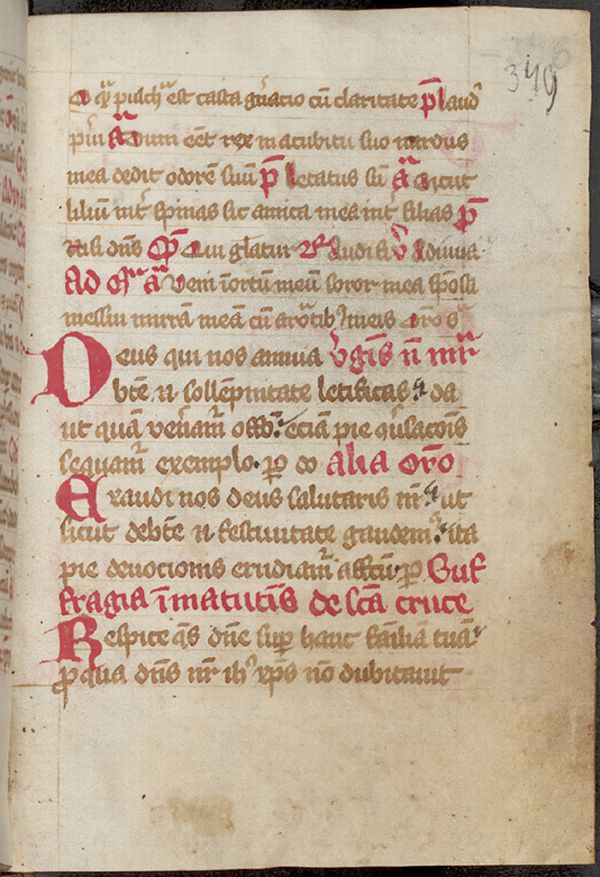 349
O qͣ pulchͣ est casta gn̄atio cū claritate p̄s laudͦ
pͥui añ Dum eēt rex in acubitu suo nardus
mea dedit odorē suū p̄s letatus sū añ Sicut
lilium int̾ spinas sic amica mea int̾ filias p̄s
Nisi dn̄s
Ad añ Veni ī ortū meū soror mea spōsa
messui mirrā meā cū aromatibꝰ meis orō
Deus qui nos annua vg̾is n̄ mr̄
bt̄e n sollēpnitate letificas: da
ut quā ven̾am̄ offō: eciā pie ꝯu̾sacōis
sequam̄ exemplo. p̱ do alia oro
Exaudi nos deus salutaris nr̄: ut
sicut de bt̄e n festiuitate gaudem̾: ita
pie deuocionis erudiam̄ affcū. p̱ Suf
fragia ī matutīs de scā cruce
Respice q̄s dn̄e sup̱ hanc familiā tuā:
ꝓ qua dn̄s nr̄ ih̾ xp̄s nō dubitauit